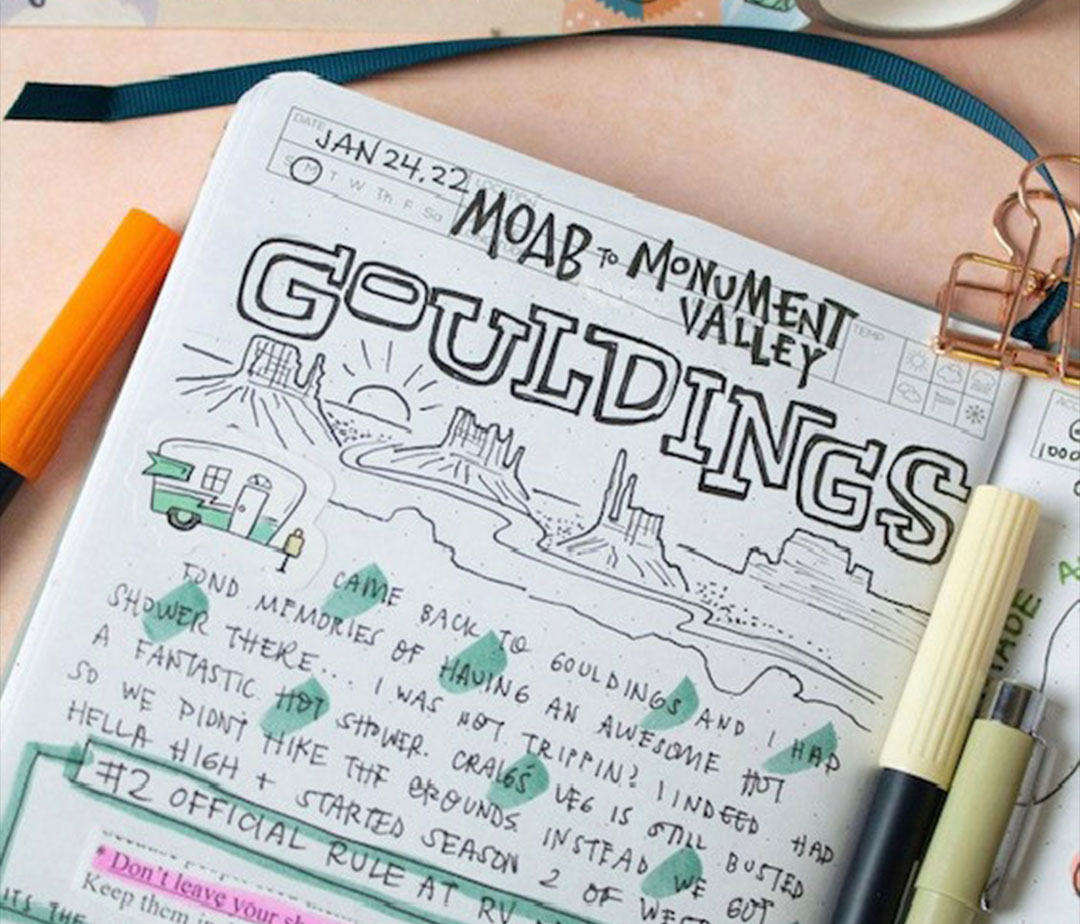 DATE
JAN 24.22
LOCATION
S M T W Th F Sa
MOAB TO MONUMENT
VALLEY
TEMP
GOULDINGS
CAME BACK TO GOULDINGS AND I HAD
FOND MEMORIES OF HAVING AN AWESOME HOT
SHOWER THERE... I WAS NOT TRIPPIN? I INDEED HAD
A FANTASTIC HOT SHOWER. CRAIG'S LEG IS STILL BUSTED
SO WE DIDN'T HIKE THE GROUNDS. INSTEAD WE GOT
HELLA HIGH + STARTED SEASON 2 OF
#2 OFFICIAL RULE AT RV
* Don't leave your
Keep them
ITS THE